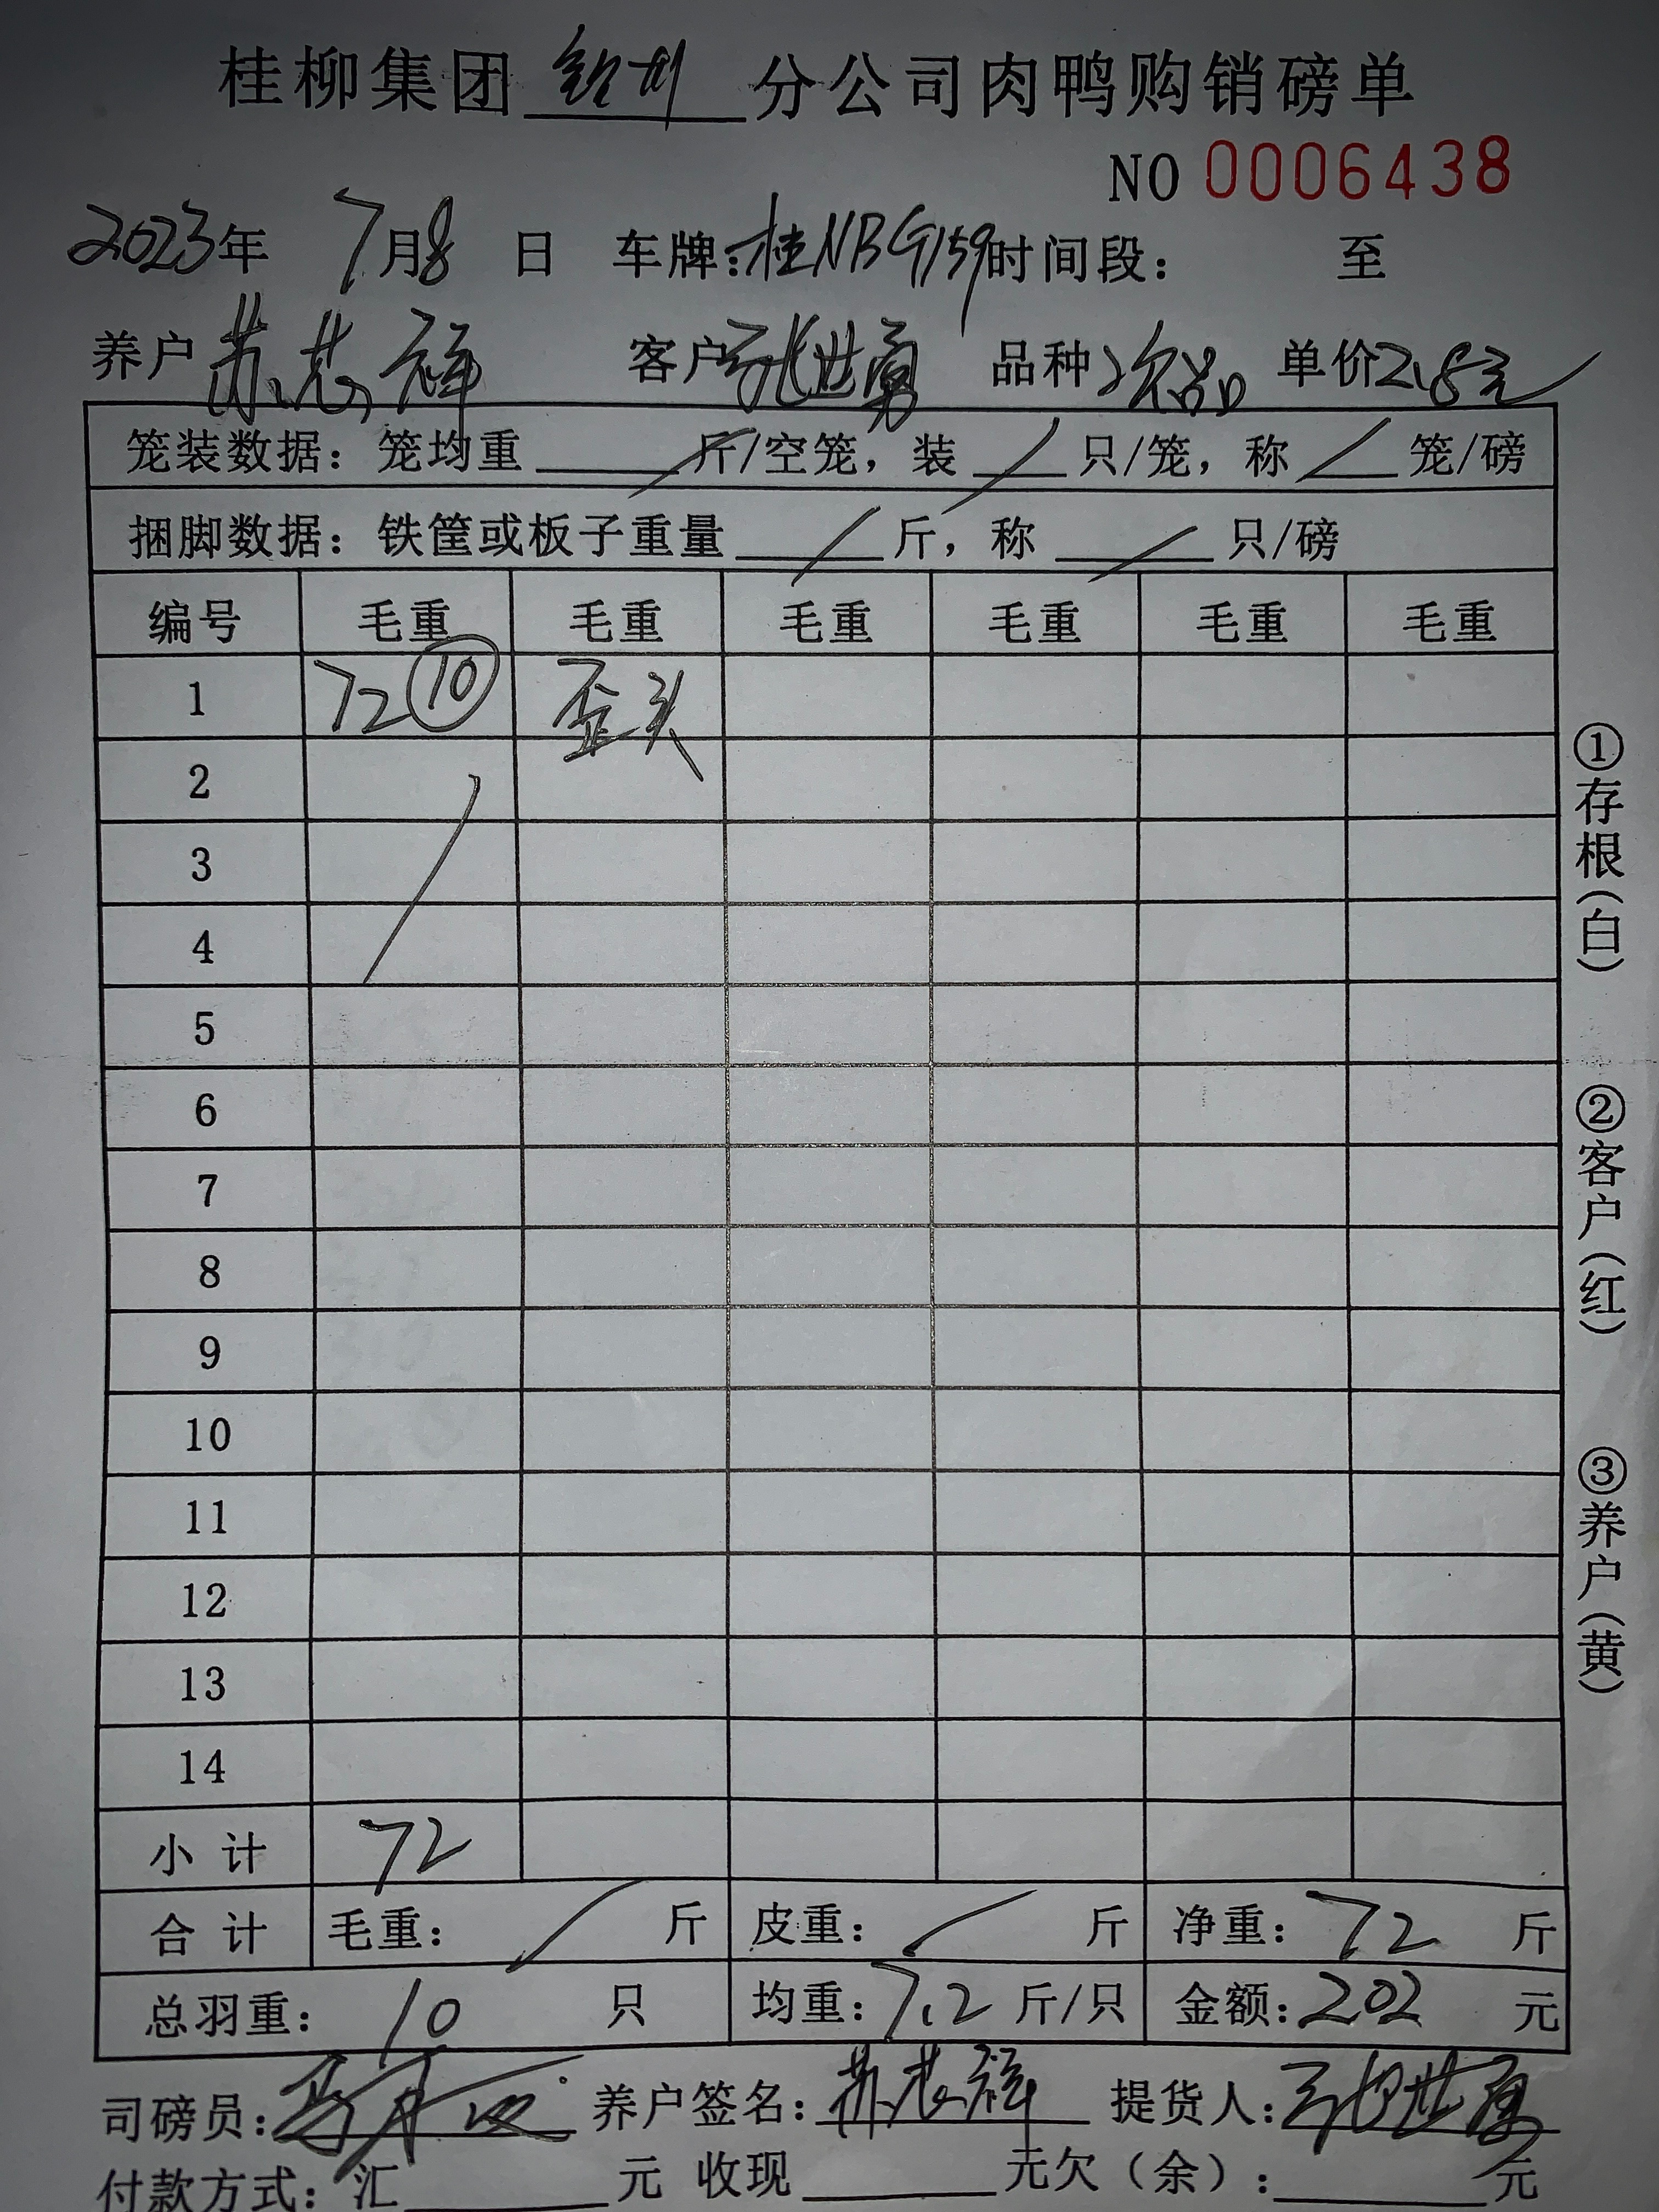 桂柳集团钦州分公司肉鸭购销磅单
NO 0006438
2023年 7月8日 车牌:桂NBG159时间段: 至
养户 客户张世勇 品种次品 单价2.8元
笼装数据: 笼均重 斤/空笼, 装 只/笼, 称 笼/磅
捆脚数据: 铁筐或板子重量 斤, 称 只/磅
编号 毛重 毛重 毛重 毛重 毛重 毛重
1 72 ⑩ 歪头
2
3
4
5
6
7
8
9
10
11
12
13
14
小计 72
合计 毛重: 斤 皮重: 斤 净重: 72 斤
总羽重: 10 只 均重: 7.2 斤/只 金额: 202 元
司磅员: 养户签名: 提货人: 张世勇
付款方式: 汇 元 收现 元欠(余): 元
①存根(白)
②客户(红)
③养户(黄)